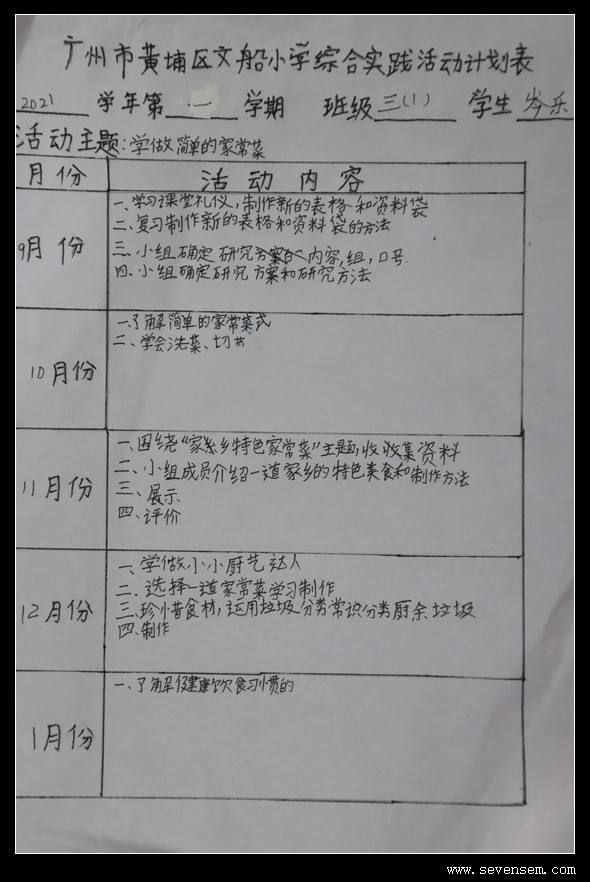 广州市黄埔区文船小学综合实践活动计划表
2021 学年第 一 学期 班级 三(1) 学生 岑乐
活动主题:学做简单的家常菜
月份 活动内容
9月份
一、学习课堂礼仪,制作新的表格和资料袋
二、复习制作新的表格和资料袋的方法
三、小组确定研究内容,组,口号.
四、小组确定研究方案和研究方法
10月份
一、了解简单的家常菜式
二、学会洗菜、切
11月份
一、围绕“家乡特色家常菜”主题,收收集资料
二、小组成员介绍一道家乡的特色美食和制作方法
三、展示
四、评价
12月份
一、学做小小厨艺达人
二、选择一道家常菜学习制作
三、珍惜食材,运用垃圾分类常识分类厨余垃圾
四、制作
1月份
一、了解健康饮食习惯的
www.sevensem.com